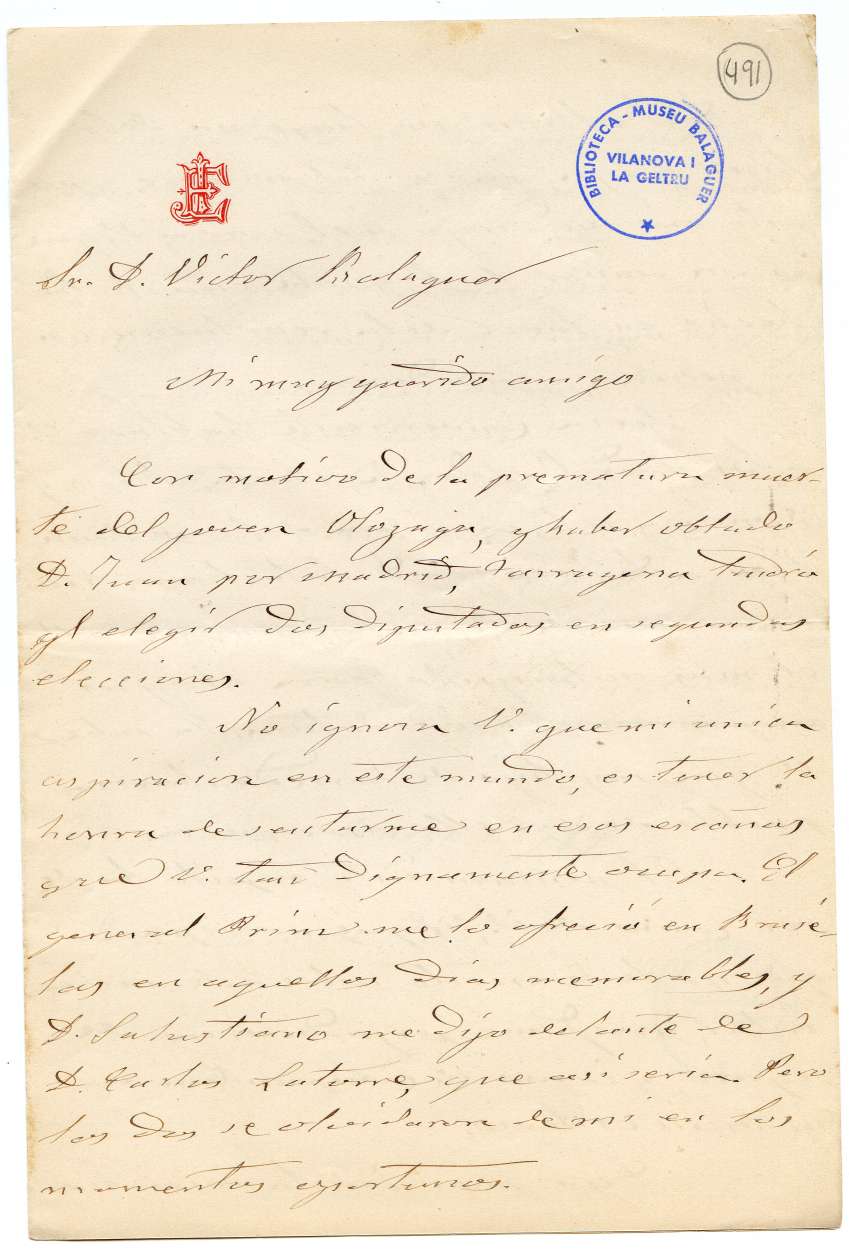 491
BIBLIOTECA - MUSEU BALAGUER
VILANOVA I
LA GELTRU
E
Sr. D. Victor Balaguer
Mi muy querido amigo
Con motivo de la prematura muer-
te del joven Olozaga, y haber obtado
D. Juan por Madrid, Tarragona tendrá
elegir dos diputados en segundas
elecciones.
No ignora V. que mi unica
aspiracion en este mundo, es tener la
honra de sentarme en esos escaños
que V. tan dignamente ocupa. El
general Prim me lo ofreció en Bruse-
las en aquellos dias memorables, y
D. Salustiano me dijo delante de
D. Carlos Latorre, que asi seria. Pero
los dos se olvidaron de mi en los
momentos oportunos.